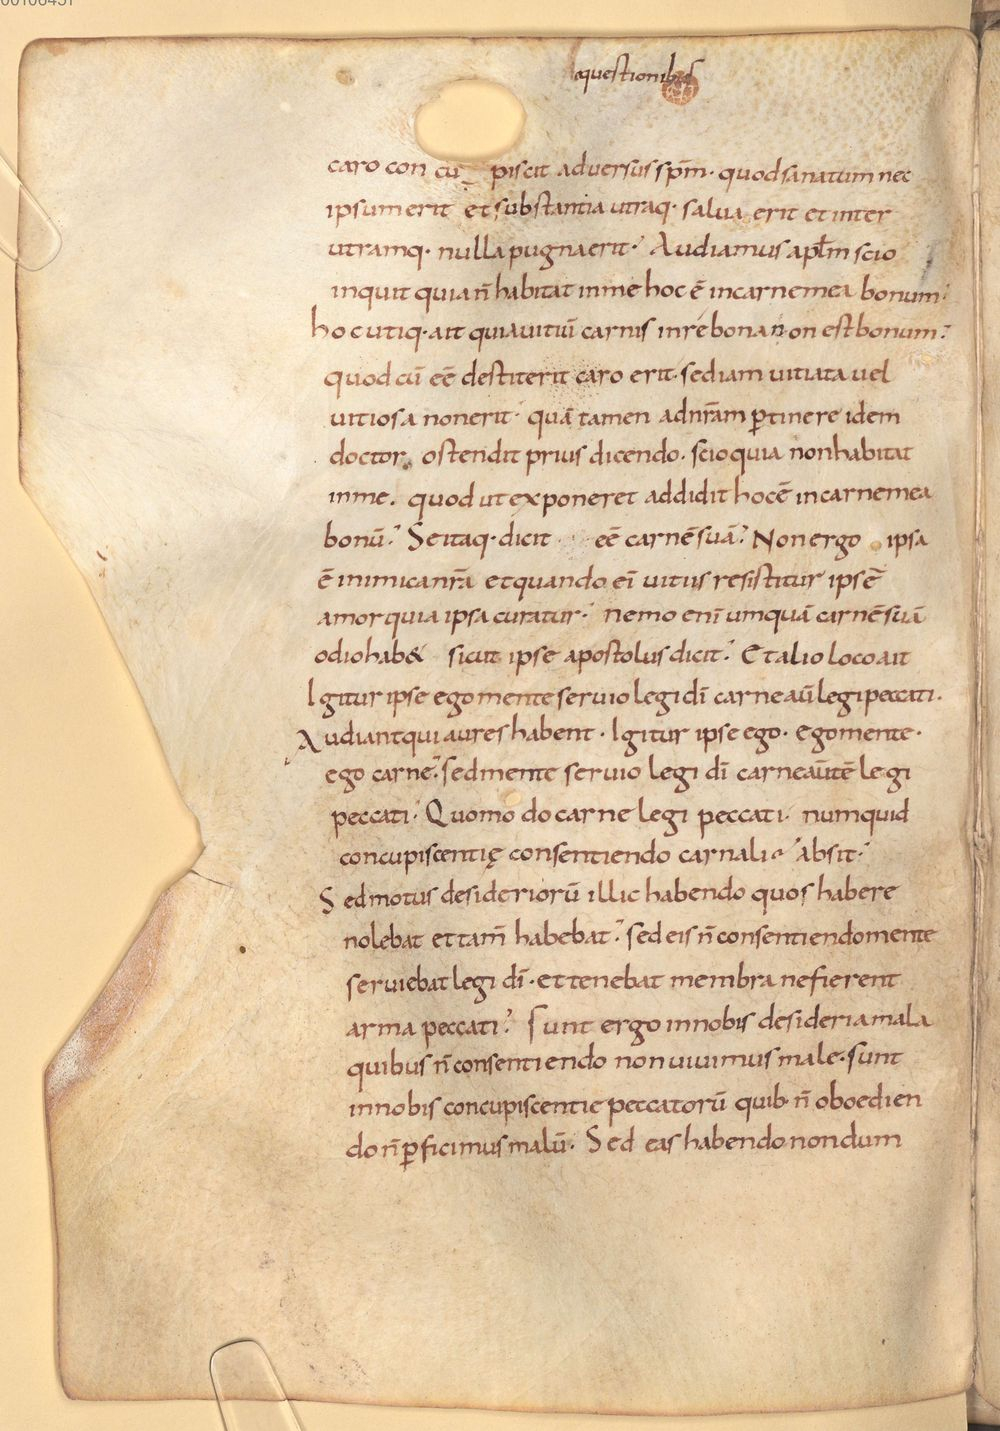 00106451
questionibus
caro con cu piscit adversus sp̄m· quod sanatum nec
ipsum erit et substantia utraq· salua erit et inter
utramq· nulla pugna erit· Audiamus apl̄m scio
inquit quia n̄ habitat in me hoc ē in carne mea bonum·
hoc utiq· ait quia uitiū carnis in re bona non est bonum·
quod cū eē destiterit caro erit· sed iam uitiata uel
uitiosa non erit· quā tamen ad nr̄am ꝑtinere idem
doctor ostendit prius dicendo· scio quia non habitat
in me. quod ut exponeret addidit hoc ē in carne mea
bonū· Se itaq· dicit eē carnē suā· Non ergo ipsa
ē inimica nr̄a et quando ei uitiis resistitur ips ē
amor quia ipsa curatur· nemo eni umquā carnē suā
odio hab& sicut ipse apostolus dicit· Et alio loco ait
Igitur ipse ego mente seruio legi dī carne aū legi peccati·
Audiant qui aures habent· Igitur ipse ego· ego mente·
ego carne· sed mente seruio legi dī carne aūtē legi
peccati· Quomodo carne legi peccati· numquid
concupiscentię consentiendo carnali absit·
Sed motus desideriorū illic habendo quos habere
nolebat et tam̄ habebat· sed eis n̄ consentiendo mente
seruiebat legi dī· et tenebat membra ne fierent
arma peccati· Sunt ergo in nobis desideria mala
quibus n̄ consentiendo non uiuimus male· sunt
in nobis concupiscentie peccatorū quib· n̄ oboedien
do n̄ ꝑficimus malū· Sed eas habendo nondum